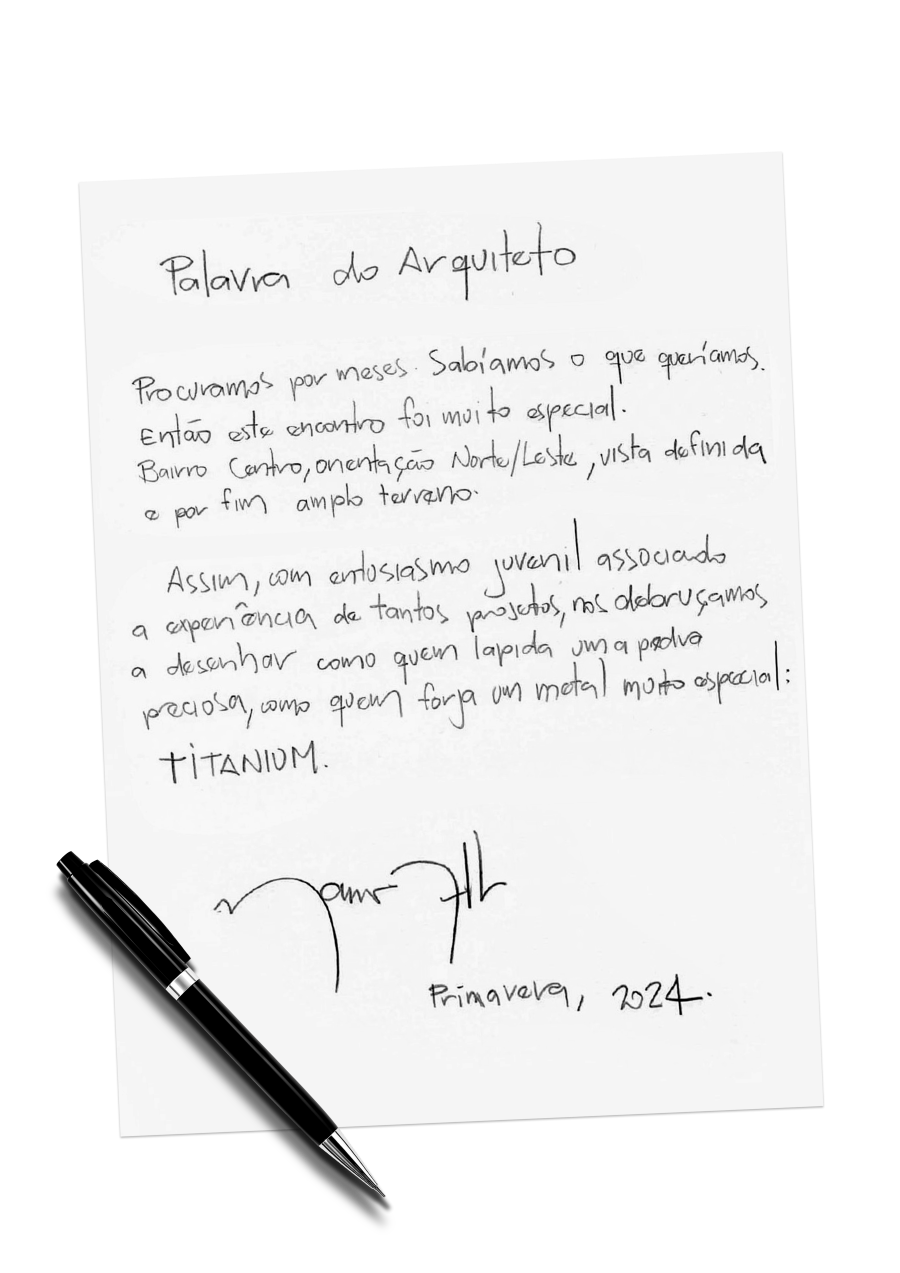 Palavra do Arquiteto
Procuramos por meses. Sabíamos o que queríamos.
Então este encontro foi muito especial.
Bairro Centro, orientação Norte/Leste, vista definida
e por fim amplo terreno.
Assim, com entusiasmo juvenil associado
a experiência de tantos projetos, nos debruçamos
a desenhar como quem lapida uma pedra
preciosa, como quem forja um metal muito especial:
TITANIUM.
Primavera, 2024.